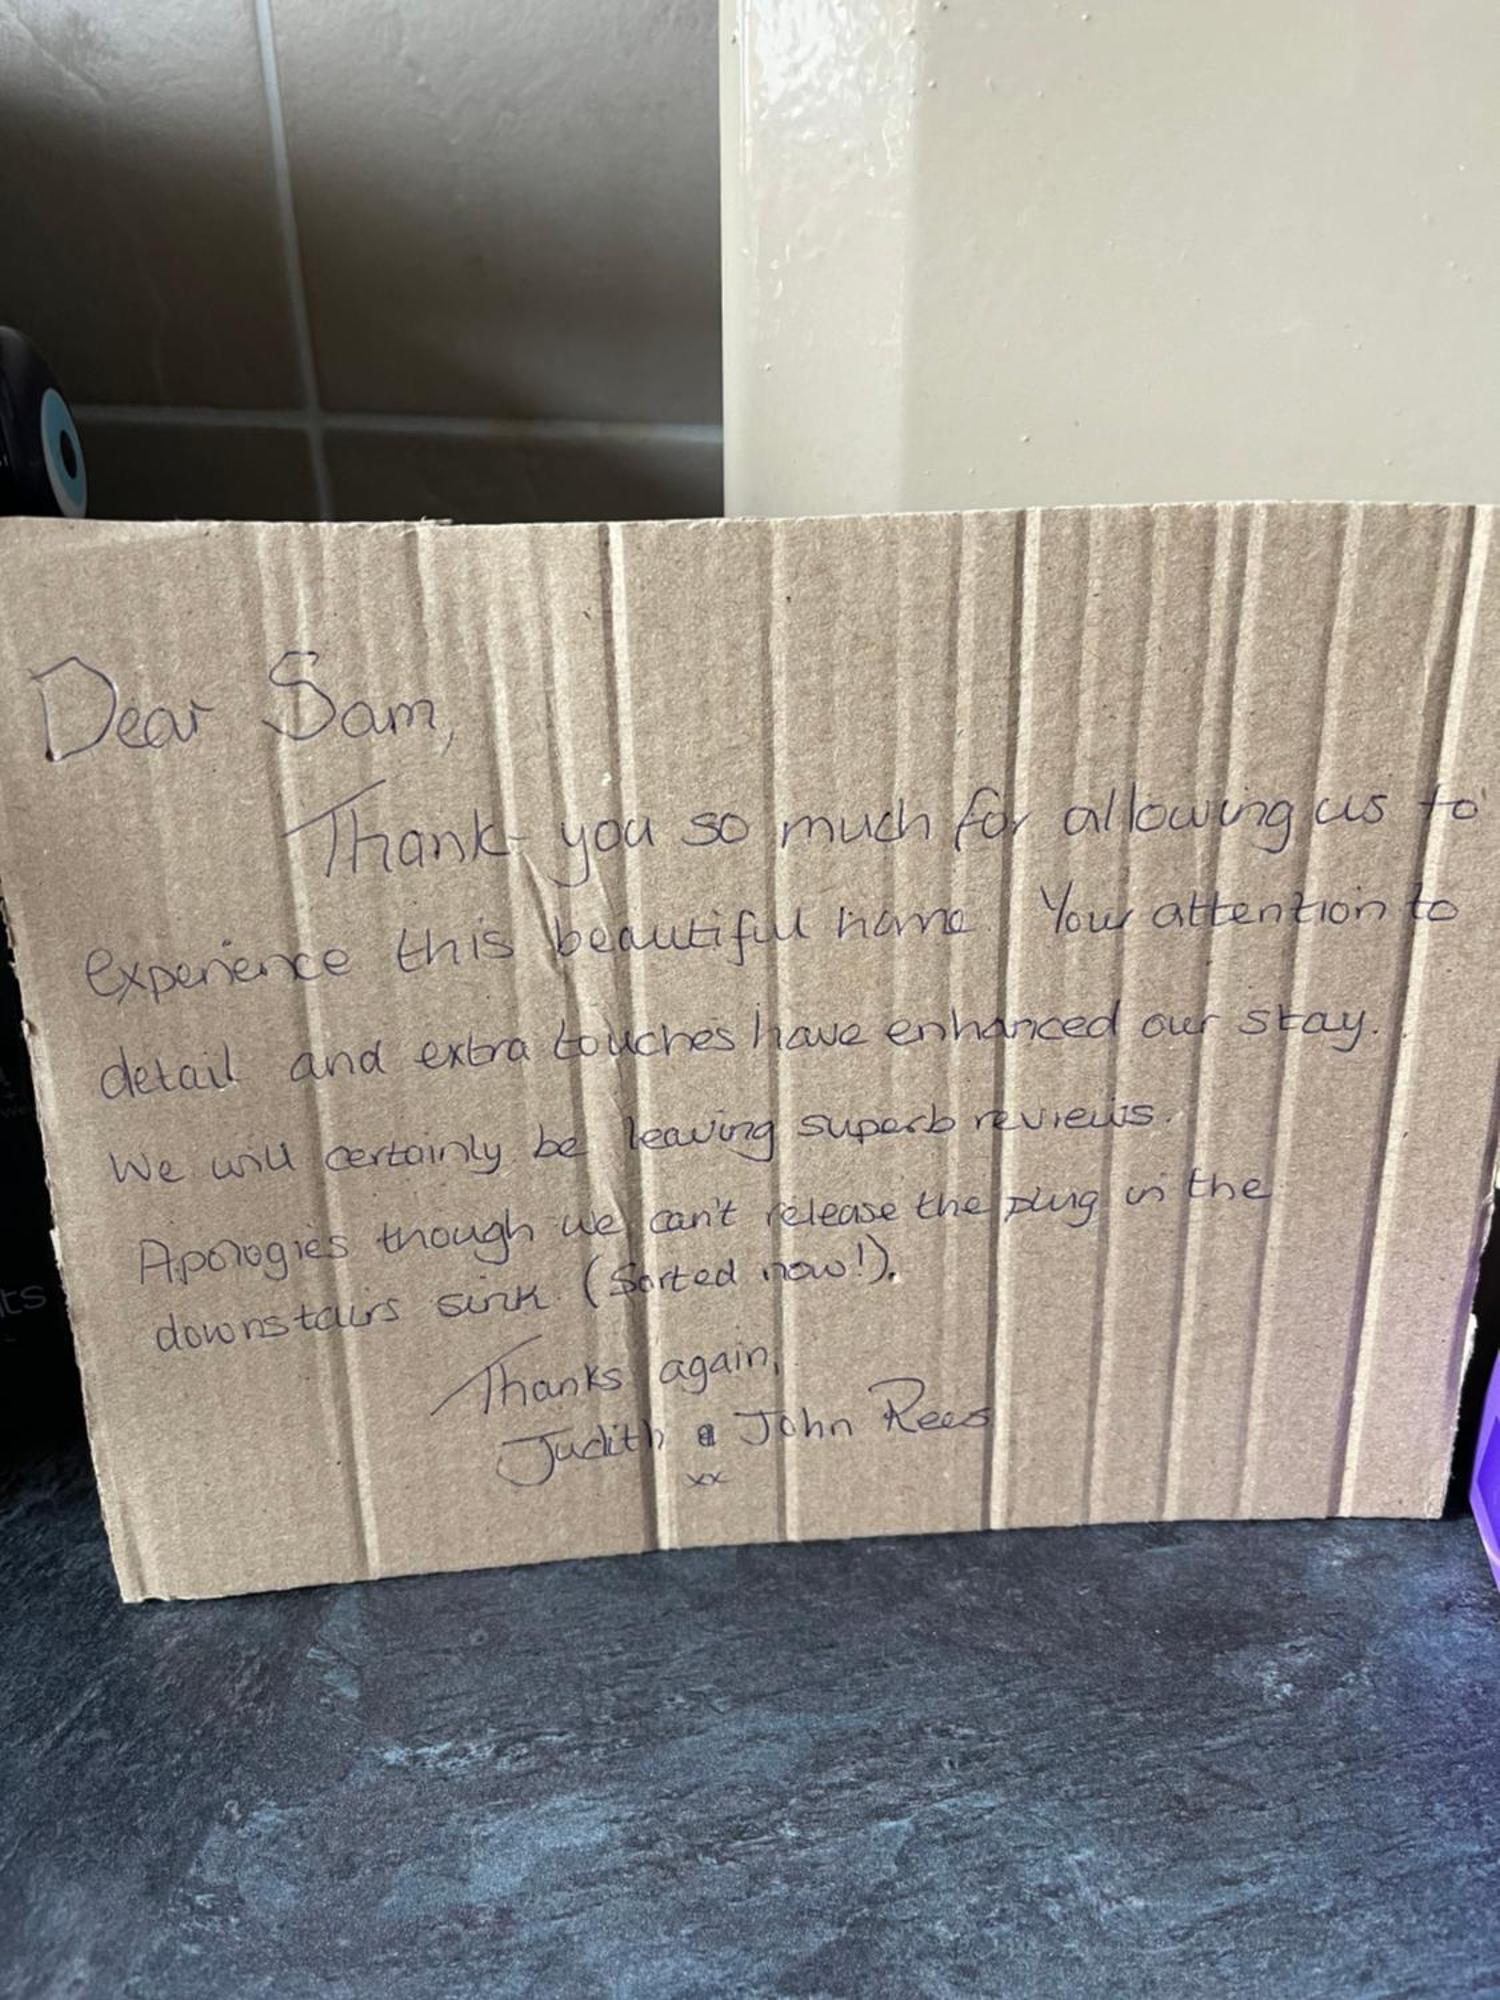 Dear Sam,
Thank you so much for allowing us to
experience this beautiful home. Your attention to
detail and extra touches have enhanced our stay.
We will certainly be leaving superb reviews.
Apologies though we can't release the plug in the
downstairs sink (Sorted now!).
Thanks again,
Judith & John Rees
xx
ts